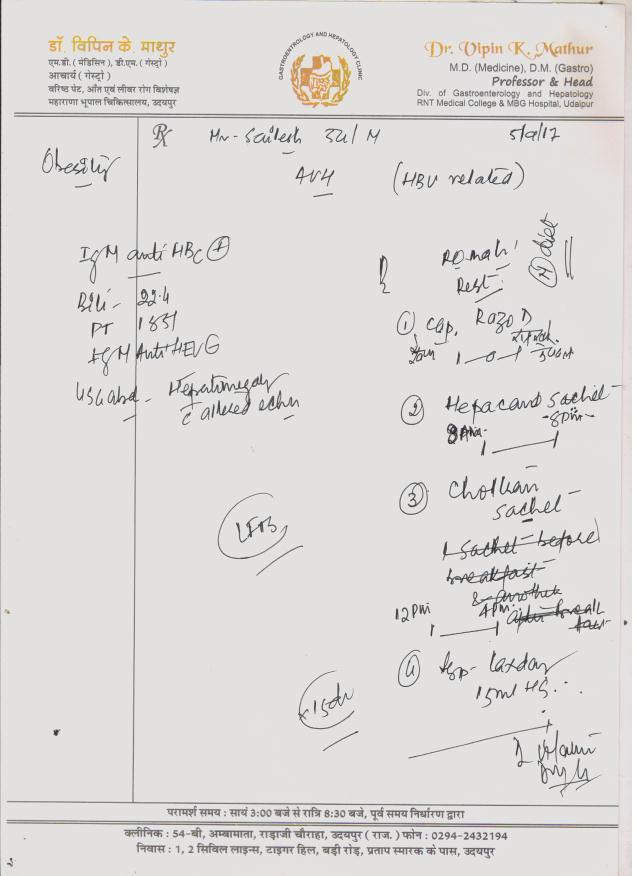 डॉ. विपिन के. माथुर
एम.डी. ( मेडिसिन ), डी.एम. ( गेस्ट्रो )
आचार्य ( गेस्ट्रो )
वरिष्ठ पेट, आँत एवं लीवर रोग विशेषज्ञ
महाराणा भूपाल चिकित्सालय, उदयपुर
GASTROENTROLOGY AND HEPATOLOGY CLINIC
Dr. Vipin K. Mathur
M.D. (Medicine), D.M. (Gastro)
Professor & Head
Div. of Gastroenterology and Hepatology
RNT Medical College & MBG Hospital, Udaipur
Rx Mr - Sailesh 34 / M 5/9/17
Obesity
AVH (HBV related)
IgM anti HBc +
Bili - 22.4
PT
IgM Anti HEV
USG abd - Hepatomegaly
c altered echo
diet
Rest
① Cap. Razo D
1 - 0 - 1
② Hepacard sachet
8 Am - 8 pm -
1 1
③ Cholkan
sachet -
1 sachet before
breakfast
& another
12 pm 4 pm after break
fast
1 1
④ Syp - Laxday
15 ml HS
x 15 d
परामर्श समय : सायं 3:00 बजे से रात्रि 8:30 बजे, पूर्व समय निर्धारण द्वारा
क्लीनिक : 54-बी, अम्बामाता, राड़ाजी चौराहा, उदयपुर ( राज. ) फोन : 0294-2432194
निवास : 1, 2 सिविल लाइन्स, टाइगर हिल, बड़ी रोड़, प्रताप स्मारक के पास, उदयपुर